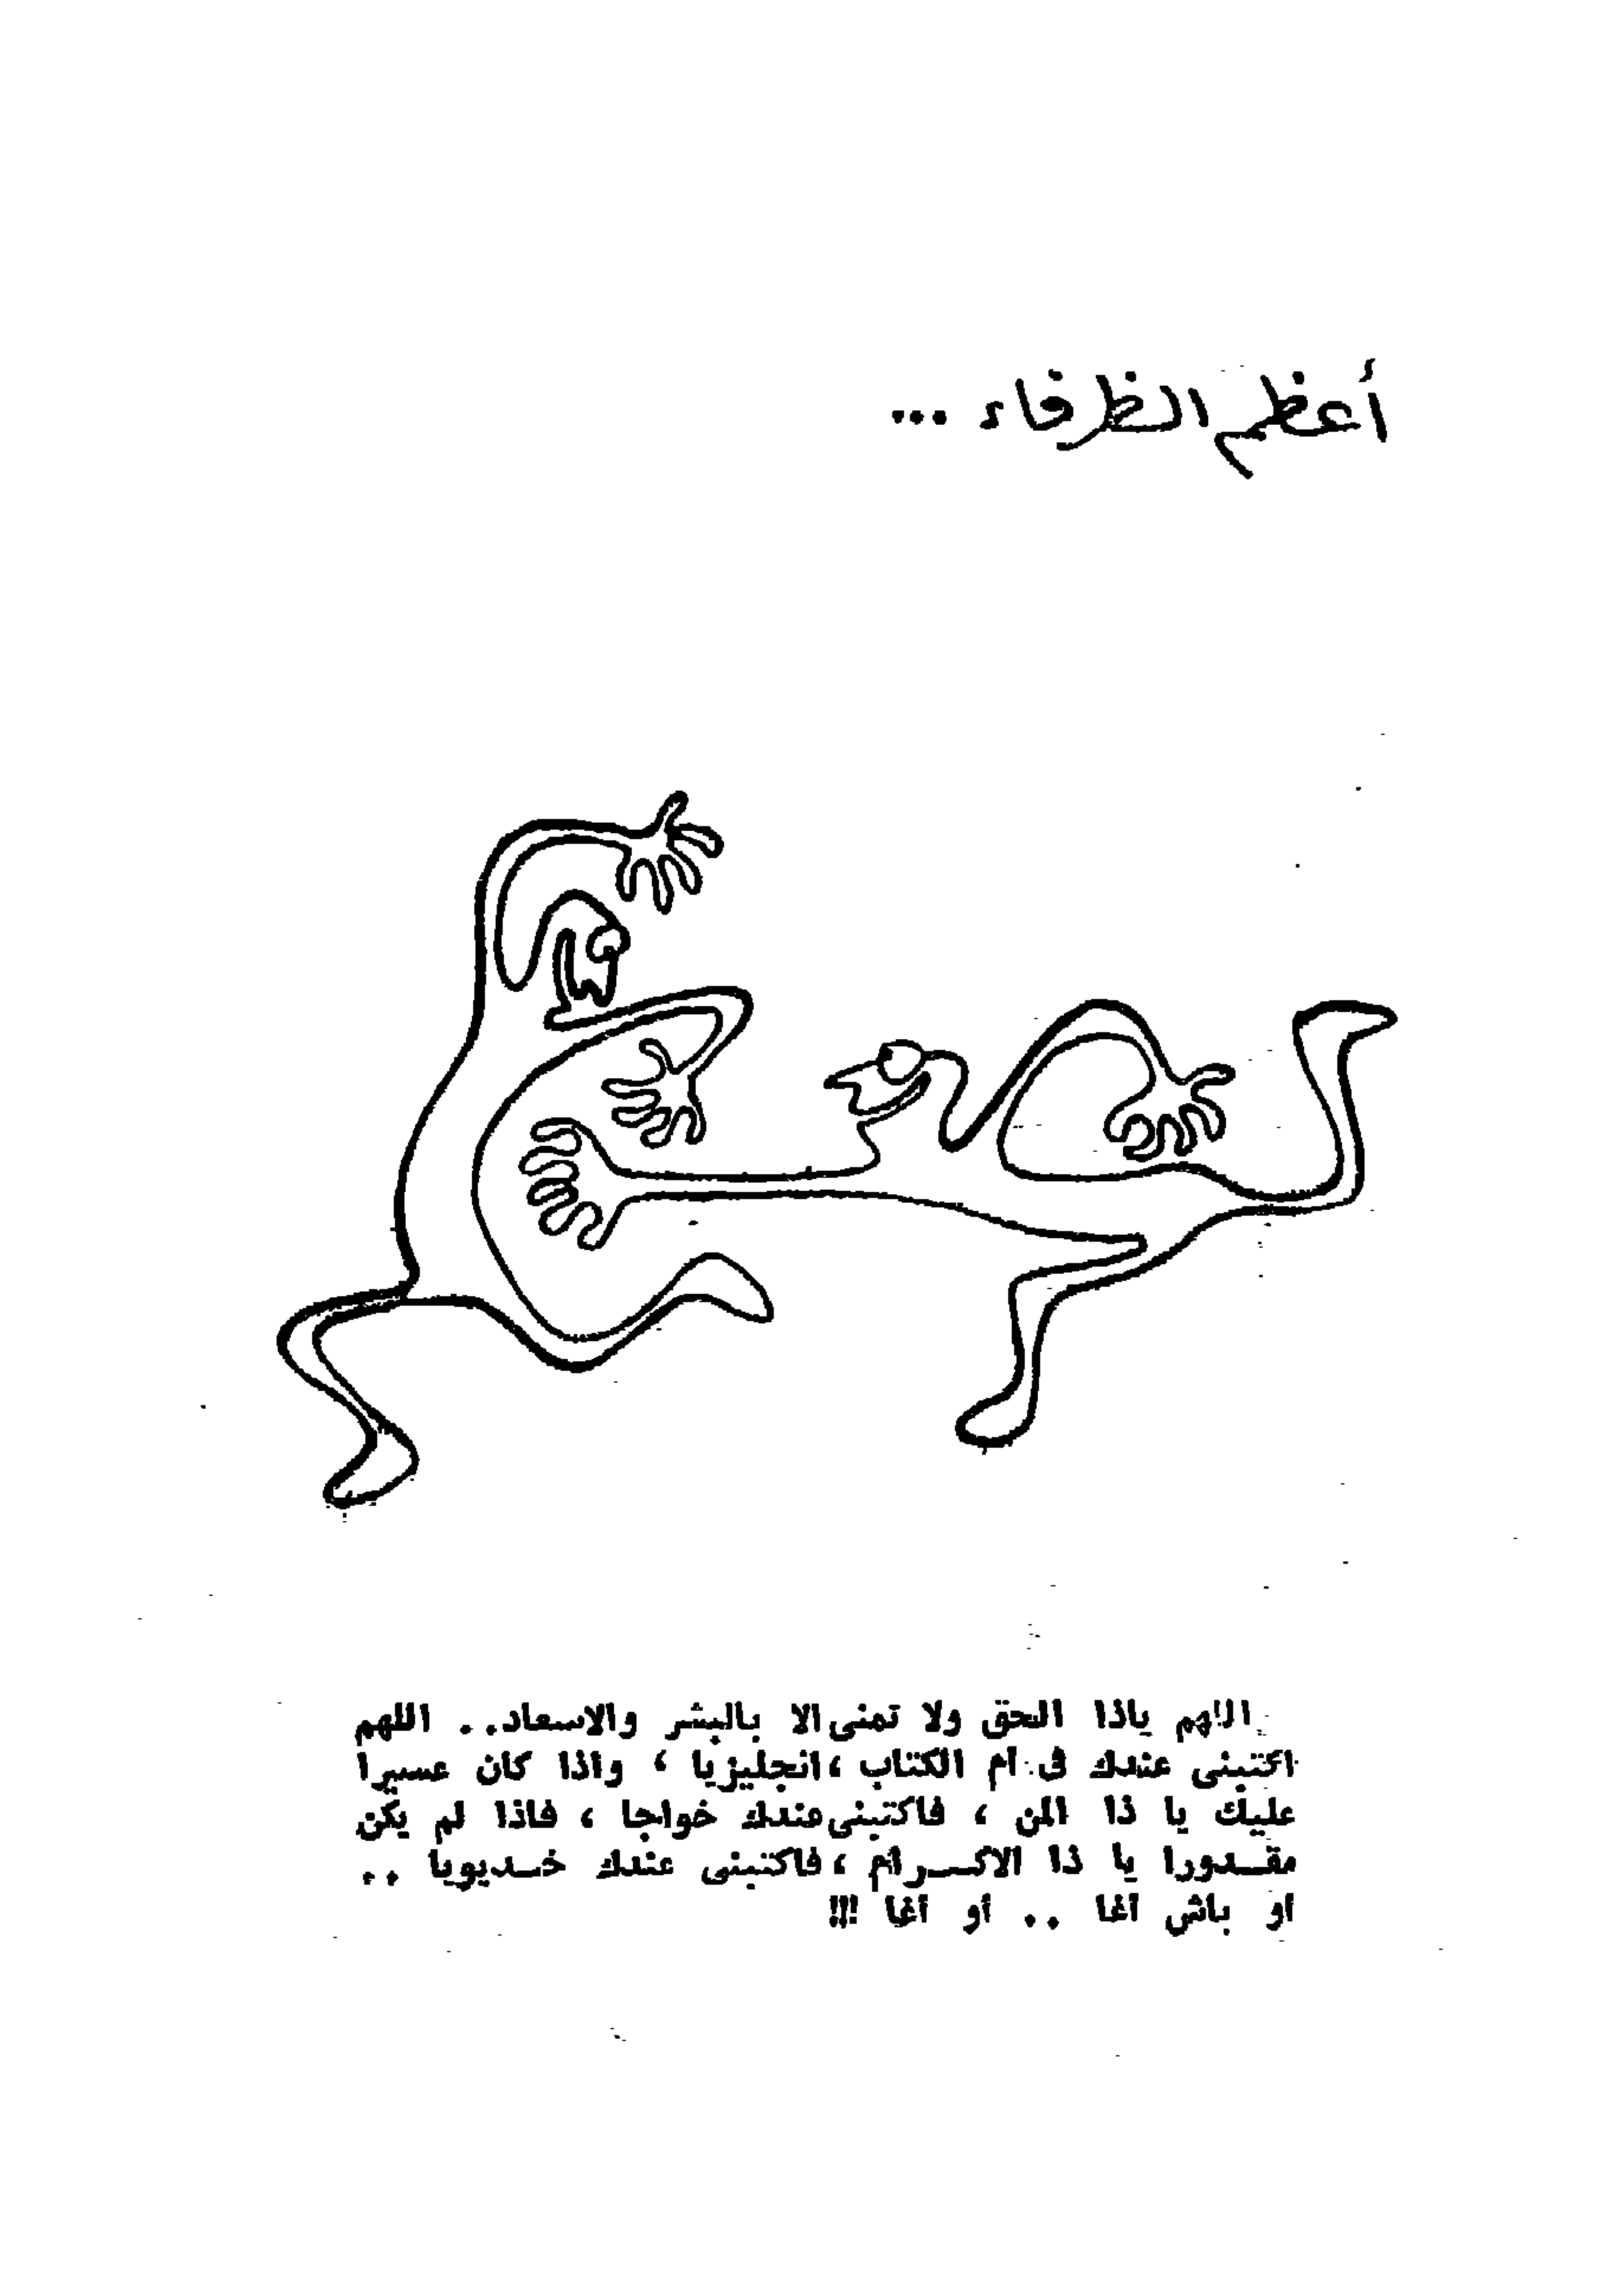 أعظم الظرفاء ...
اللهم ياذا الحق ولا تمنى الا بالبشر والاسعاد.. اللهم
اكتبنى عندك فى أم الكتاب ،انجليزيا ، واذا كان عسيرا
عليك يا ذا المن ، فاكتبنى عندك خواجا ، فاذا لم يكن
مقدورا يا ذا الاكرام ،فاكتبنى عندك خديويا ..
أو باش أغا .. أو أغا !!!